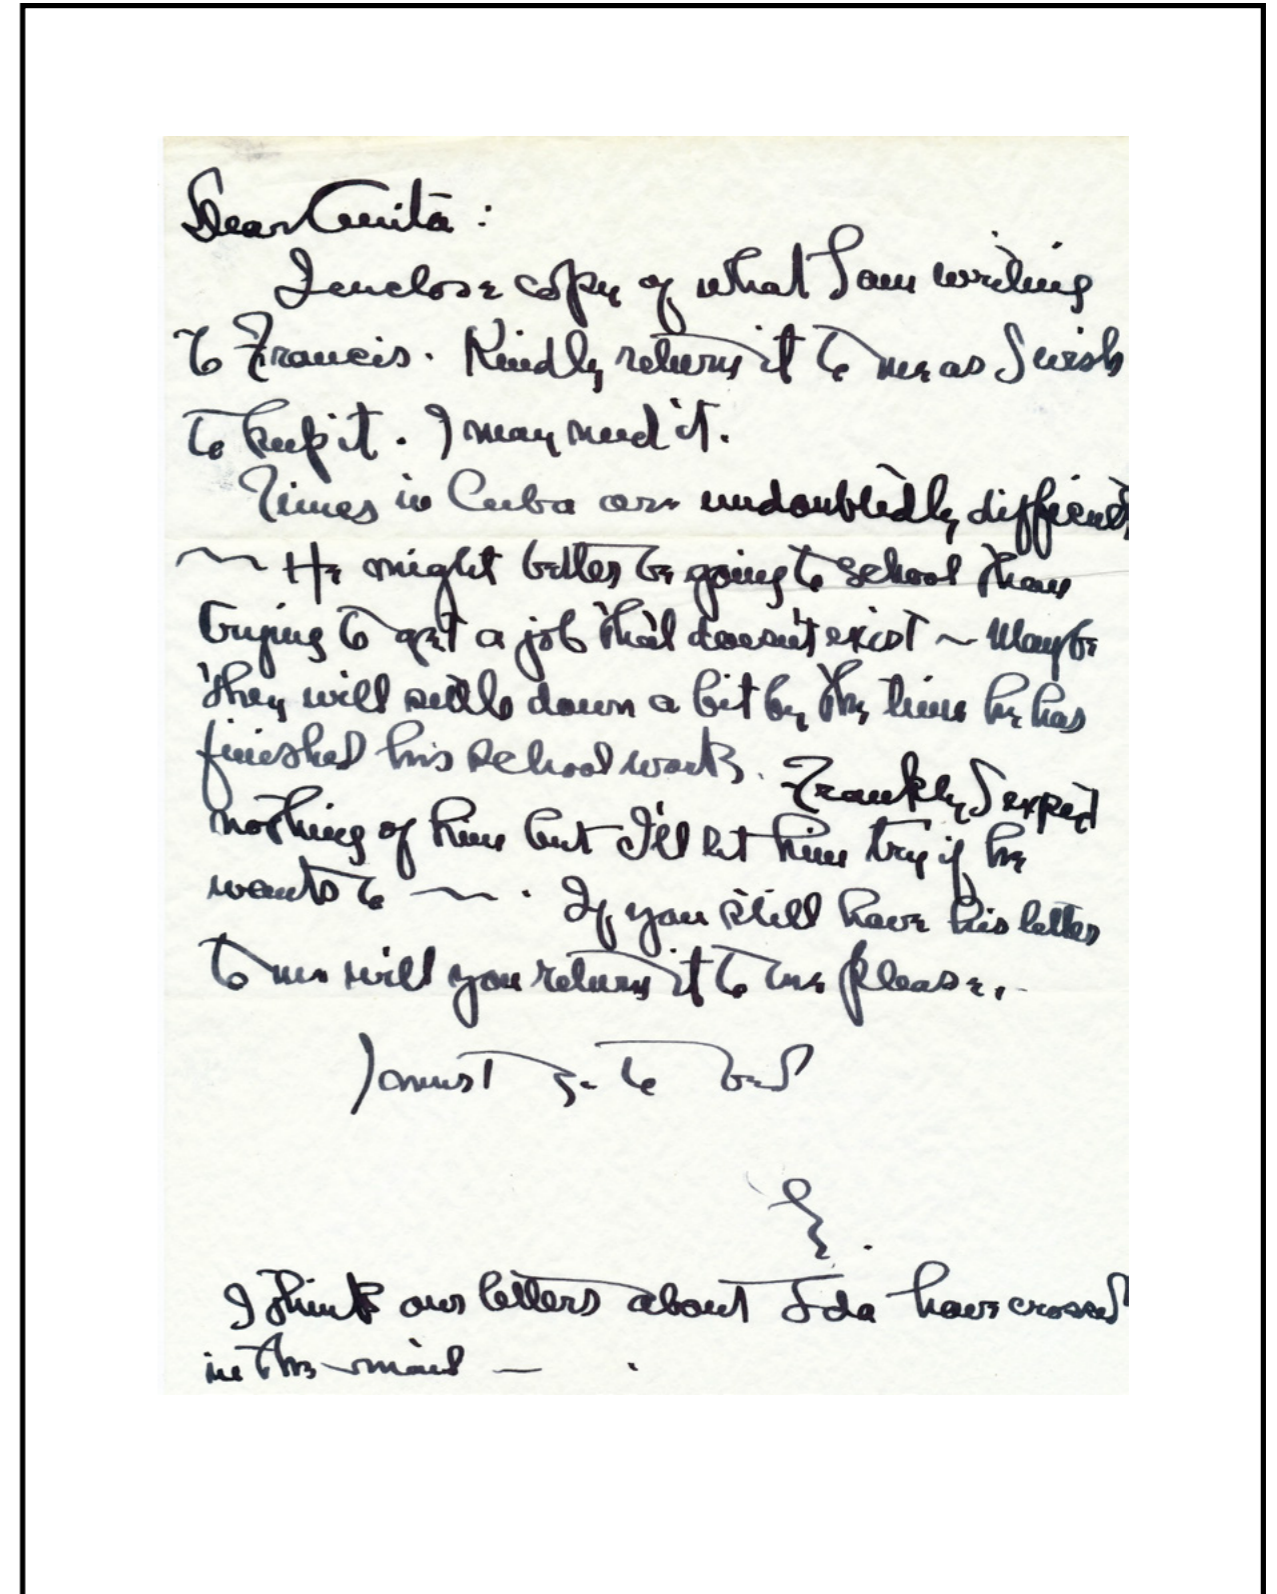 Dear Anita:
I enclose copy of what I am writing
to Francis. Kindly return it to me as I wish
to keep it. I may need it.
Times in Cuba are undoubtedly difficult
~ He might better be going to school than
trying to get a job that doesn't exist ~ Maybe
they will settle down a bit by the time he has
finished his school work. Frankly I expect
nothing of him but I'll let him try if he
wants to ~. If you still have his letter
to me will you return it to me please.
to bed
I think our letters about Ida have crossed
in the mail — .